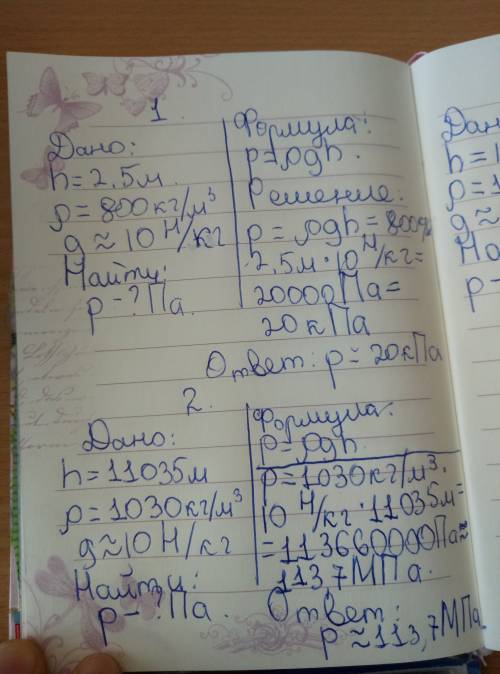 1.
Дано:
h=2,5м
ρ=800кг/м³
g≈10Н/кг
Найти:
p-?Па
Формула:
p=ρgh.
Решение:
p=ρgh=800
·2,5м·10Н/кг=
20000Па=
20кПа
Ответ: p≈20кПа
2.
Дано:
h=11035м
ρ=1030кг/м³
g≈10Н/кг
Найти:
p-?Па.
Формула:
p=ρgh
p=1030кг/м³·
10Н/кг·11035м=
=113660000Па≈
113,7МПа.
Ответ:
p≈113,7МПа.
Дано
h=1
ρ=1
g≈
На
p-